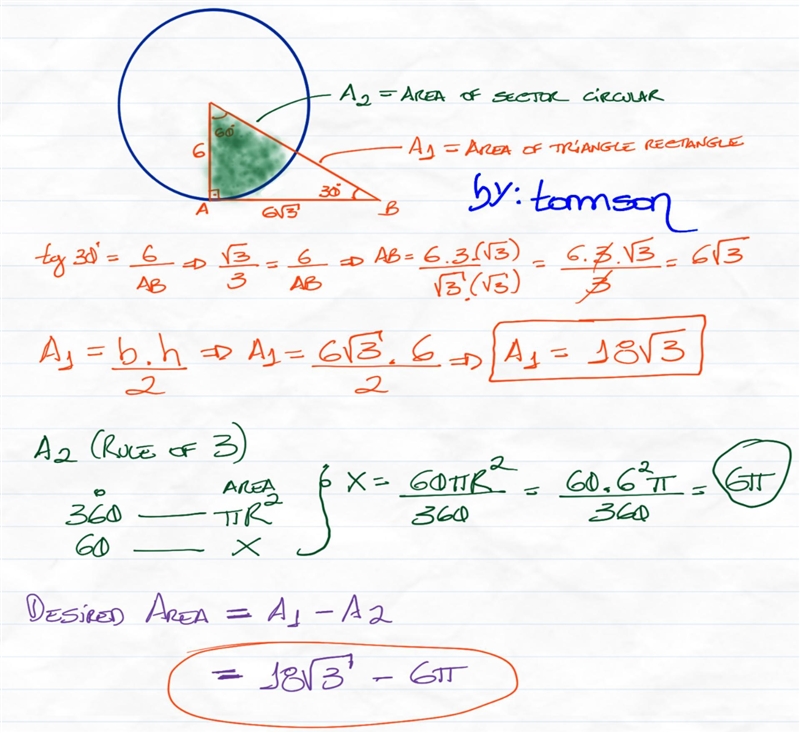 A2 = AREA OF SECTOR CIRCULAR
60°
6
A1 = AREA OF TRIANGLE RECTANGLE
30°
A
6√3
B
by: tomson
tg 30° = 6/AB ⇒ √3/3 = 6/AB ⇒ AB = 6.3.(√3)/√3.(√3) = 6.3.√3/3 = 6√3
A1 = b.h/2 ⇒ A1 = 6√3 . 6/2 ⇒ A1 = 18√3
A2 (RULE OF 3)
AREA
360° — πR²
60 — X
X = 60πR²/360 = 60.6²π/360 = 6π
DESIRED AREA = A1 - A2
= 18√3 - 6π